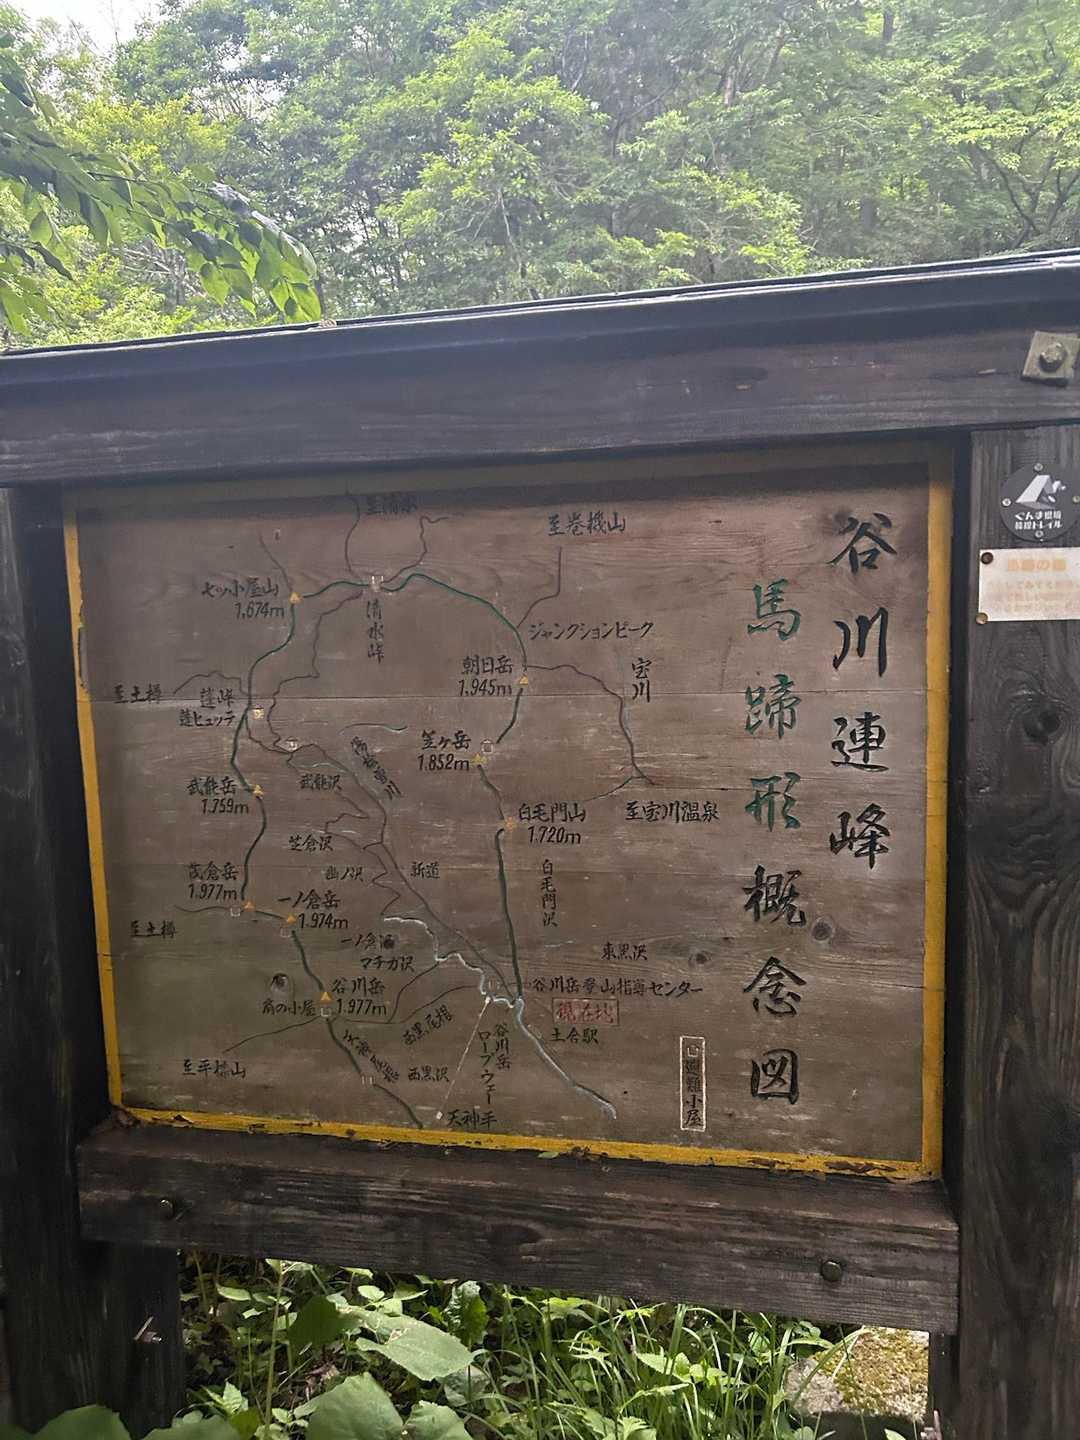 谷川連峰
馬蹄形概念図
至清水
至巻機山
七ッ小屋山
1,674m
清水峠
ジャンクションピーク
朝日岳
1,945m
宝川
至土樽
蓬峠
蓬ヒュッテ
笠ヶ岳
1,852m
湯桧曽川
武能岳
1,759m
武能沢
白毛門山
1,720m
至宝川温泉
芝倉沢
茂倉岳
1,977m
幽ノ沢
新道
白毛門沢
一ノ倉岳
1,974m
至土樽
一ノ倉沢
マチガ沢
東黒沢
谷川岳
1,977m
肩の小屋
谷川岳登山指導センター
現在地
土合駅
西黒尾根
天神尾根
谷川岳
ロープウェー
西黒沢
至平標山
天神平
避難小屋
ぐんま県境
稜線トレイル